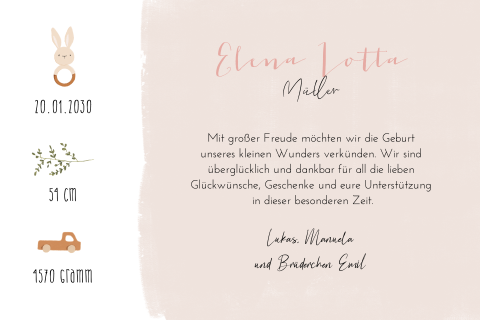 20.01.2030
54 cm
4570 Gramm
Elena Lotta
Müller
Mit großer Freude möchten wir die Geburt
unseres kleinen Wunders verkünden. Wir sind
überglücklich und dankbar für all die lieben
Glückwünsche, Geschenke und eure Unterstützung
in dieser besonderen Zeit.
Lukas, Manuela
und Brüderchen Emil